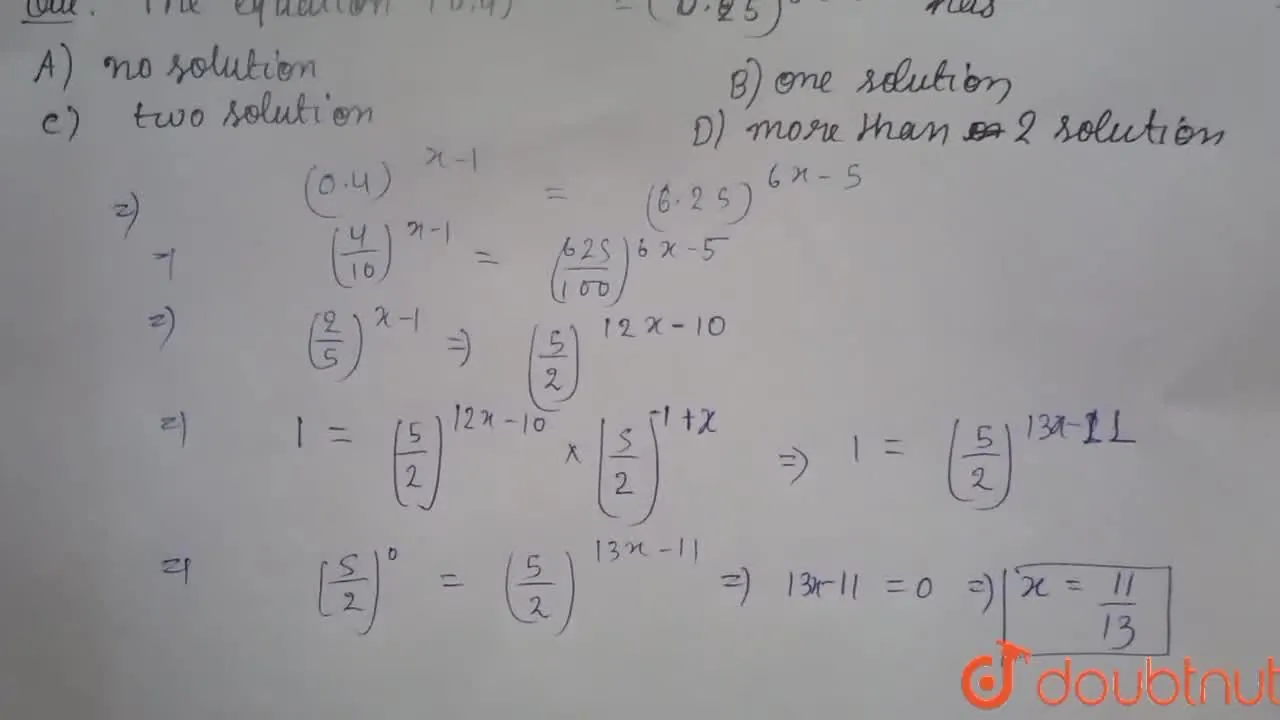 Que. The equation (0.4) = (6.25) has
A) no solution
B) one solution
C) two solution
D) more than 2 solution
=) (0.4)^{x-1} = (6.25)^{6x-5}
=) (4/10)^{x-1} = (625/100)^{6x-5}
=) (2/5)^{x-1} => (5/2)^{12x-10}
=) 1 = (5/2)^{12x-10} × (5/2)^{-1+x} => 1 = (5/2)^{13x-11}
=) (5/2)^0 = (5/2)^{13x-11} => 13x-11 = 0 => x = 11/13
doubtnut